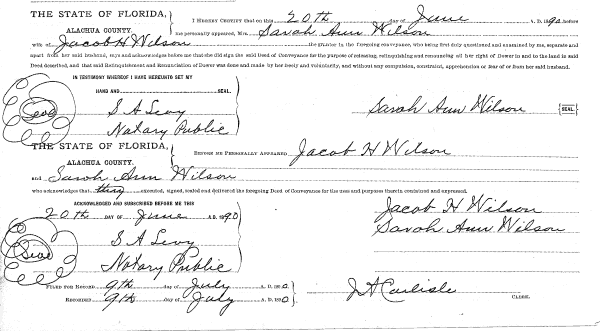 THE STATE OF FLORIDA,
ALACHUA COUNTY.
I HEREBY CERTIFY that on this 20th day of June A. D. 1890 before
me personally appeared, Mrs. Sarah Ann Wilson
wife of Jacob H Wilson the grantor in the foregoing conveyance, who being first duly questioned and examined by me, separate and
apart from her said husband, says and acknowledges before me that she did sign the said Deed of Conveyance for the purpose of releasing, relinquishing and renouncing all her right of Dower in and to the land in said
Deed described, and that said Relinquishment and Renunciation of Dower was done and made by her freely and voluntarily, and without any compulsion, constraint, apprehension or fear of or from her said husband.
IN TESTIMONY WHEREOF I HAVE HEREUNTO SET MY
HAND AND SEAL.
Seal
S A Levy
Notary Public
Sarah Ann Wilson SEAL
THE STATE OF FLORIDA,
ALACHUA COUNTY.
BEFORE ME PERSONALLY APPEARED Jacob H Wilson
and Sarah Ann Wilson
who acknowledges that they executed, signed, sealed and delivered the foregoing Deed of Conveyance for the uses and purposes therein contained and expressed.
ACKNOWLEDGED AND SUBSCRIBED BEFORE ME THIS
20th DAY OF June A.D. 1890
Seal
S A Levy
Notary Public
Jacob H Wilson
Sarah Ann Wilson
FILED FOR RECORD 9th day of July A. D. 1890
RECORDED 9th day of July A. D. 1890
J A Carlisle CLERK.